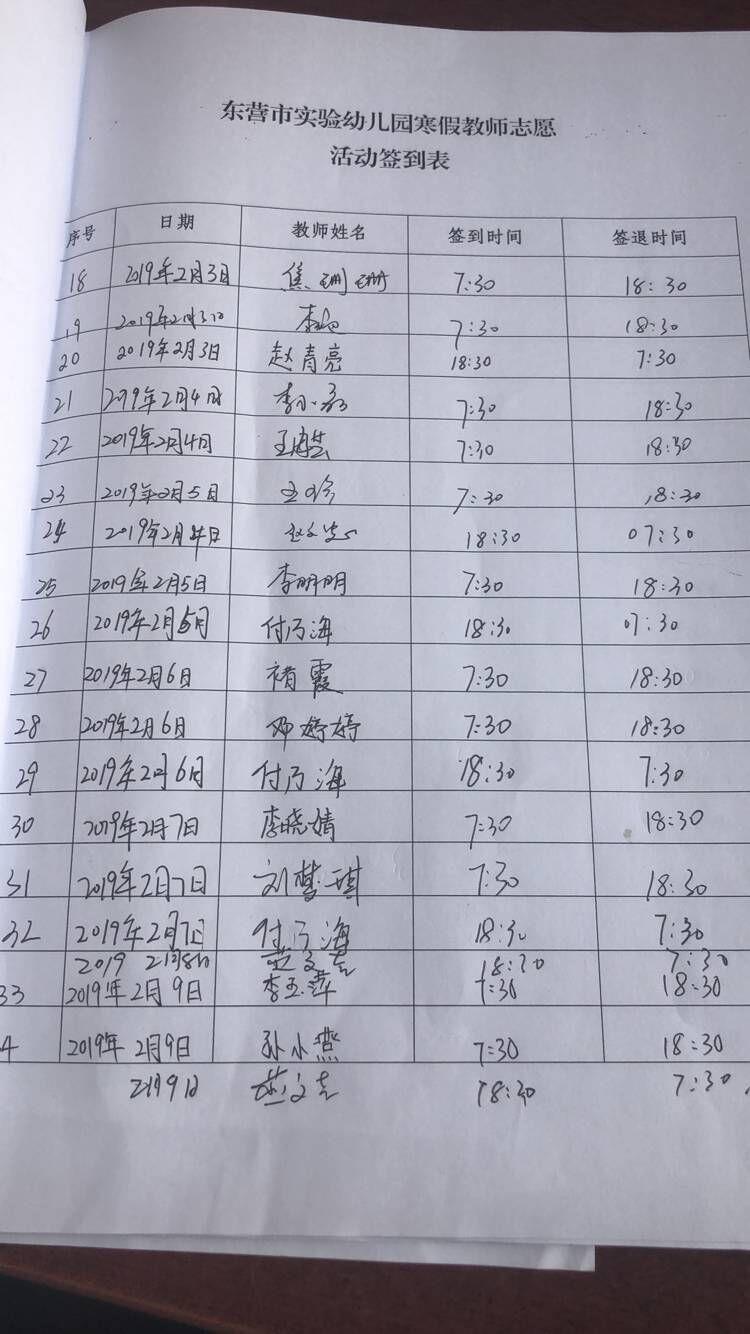 东营市实验幼儿园寒假教师志愿
活动签到表
序号 日期 教师姓名 签到时间 签退时间
18 2019年2月3日 焦珊珊 7:30 18:30
19 2019年2月3日 李 7:30 18:30
20 2019年2月3日 赵青亮 18:30 7:30
21 2019年2月4日 李小 7:30 18:30
22 2019年2月4日 王 7:30 18:30
23 2019年2月5日 王 7:30 18:30
24 2019年2月4日 18:30 07:30
25 2019年2月5日 李明明 7:30 18:30
26 2019年2月5日 付乃海 18:30 07:30
27 2019年2月6日 褚霞 7:30 18:30
28 2019年2月6日 邓婷婷 7:30 18:30
29 2019年2月6日 付乃海 18:30 7:30
30 2019年2月7日 李晓婧 7:30 18:30
31 2019年2月7日 刘梦琪 7:30 18:30
32 2019年2月7日 付乃海 18:30 7:30
2019 2月8日 18:30 7:30
33 2019年2月9日 李玉萍 7:30 18:30
4 2019年2月9日 孙小燕 7:30 18:30
2月9日 18:30 7:30